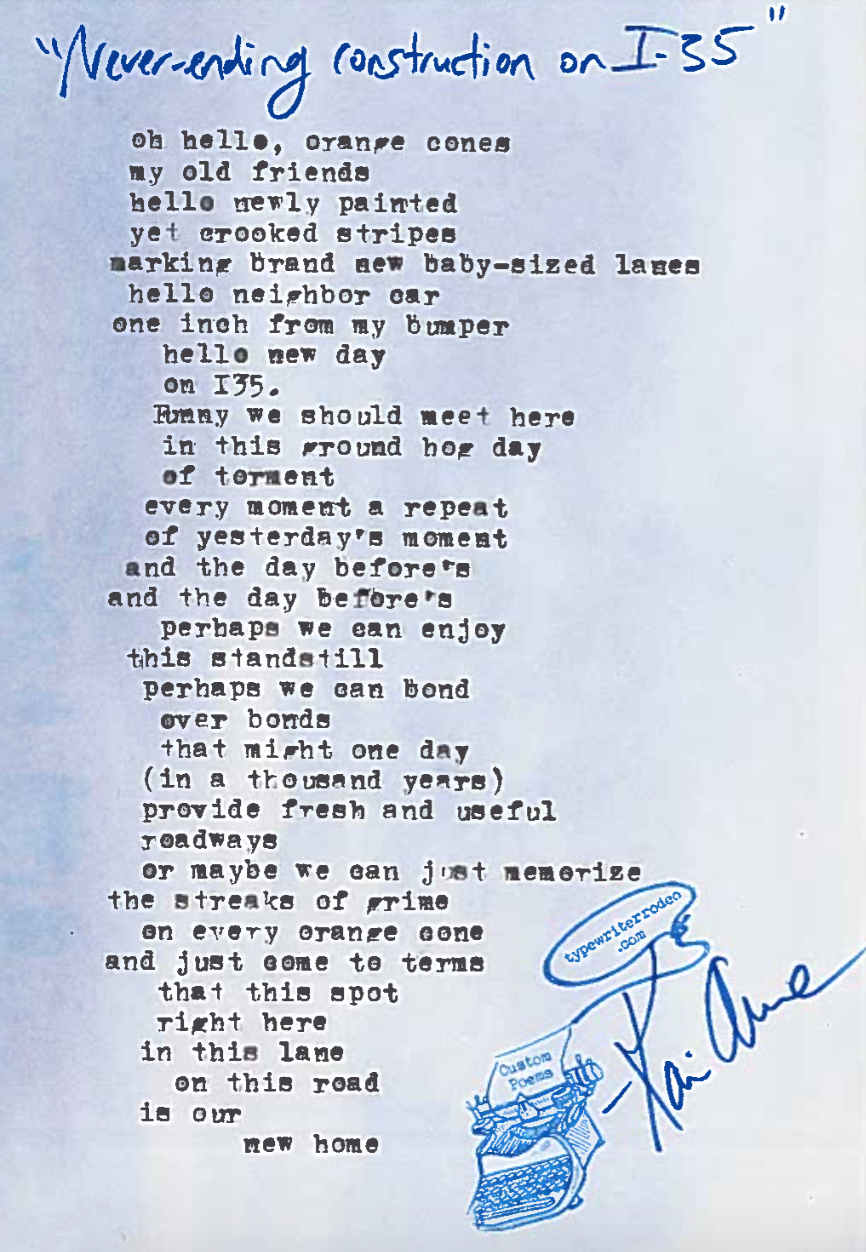 "Never-ending construction on I-35"
oh hello, orange cones
my old friends
hello newly painted
yet crooked stripes
marking brand new baby-sized lanes
hello neighbor car
one inch from my bumper
hello new day
on I35.
Funny we should meet here
in this ground hog day
of torment
every moment a repeat
of yesterday's moment
and the day before's
and the day before's
perhaps we can enjoy
this standstill
perhaps we can bond
over bonds
that might one day
(in a thousand years)
provide fresh and useful
roadways
or maybe we can just memorize
the streaks of grime
on every orange cone
and just come to terms
that this spot
right here
in this lane
on this road
is our
new home
typewriterrodeo
.com
Custom
Poems